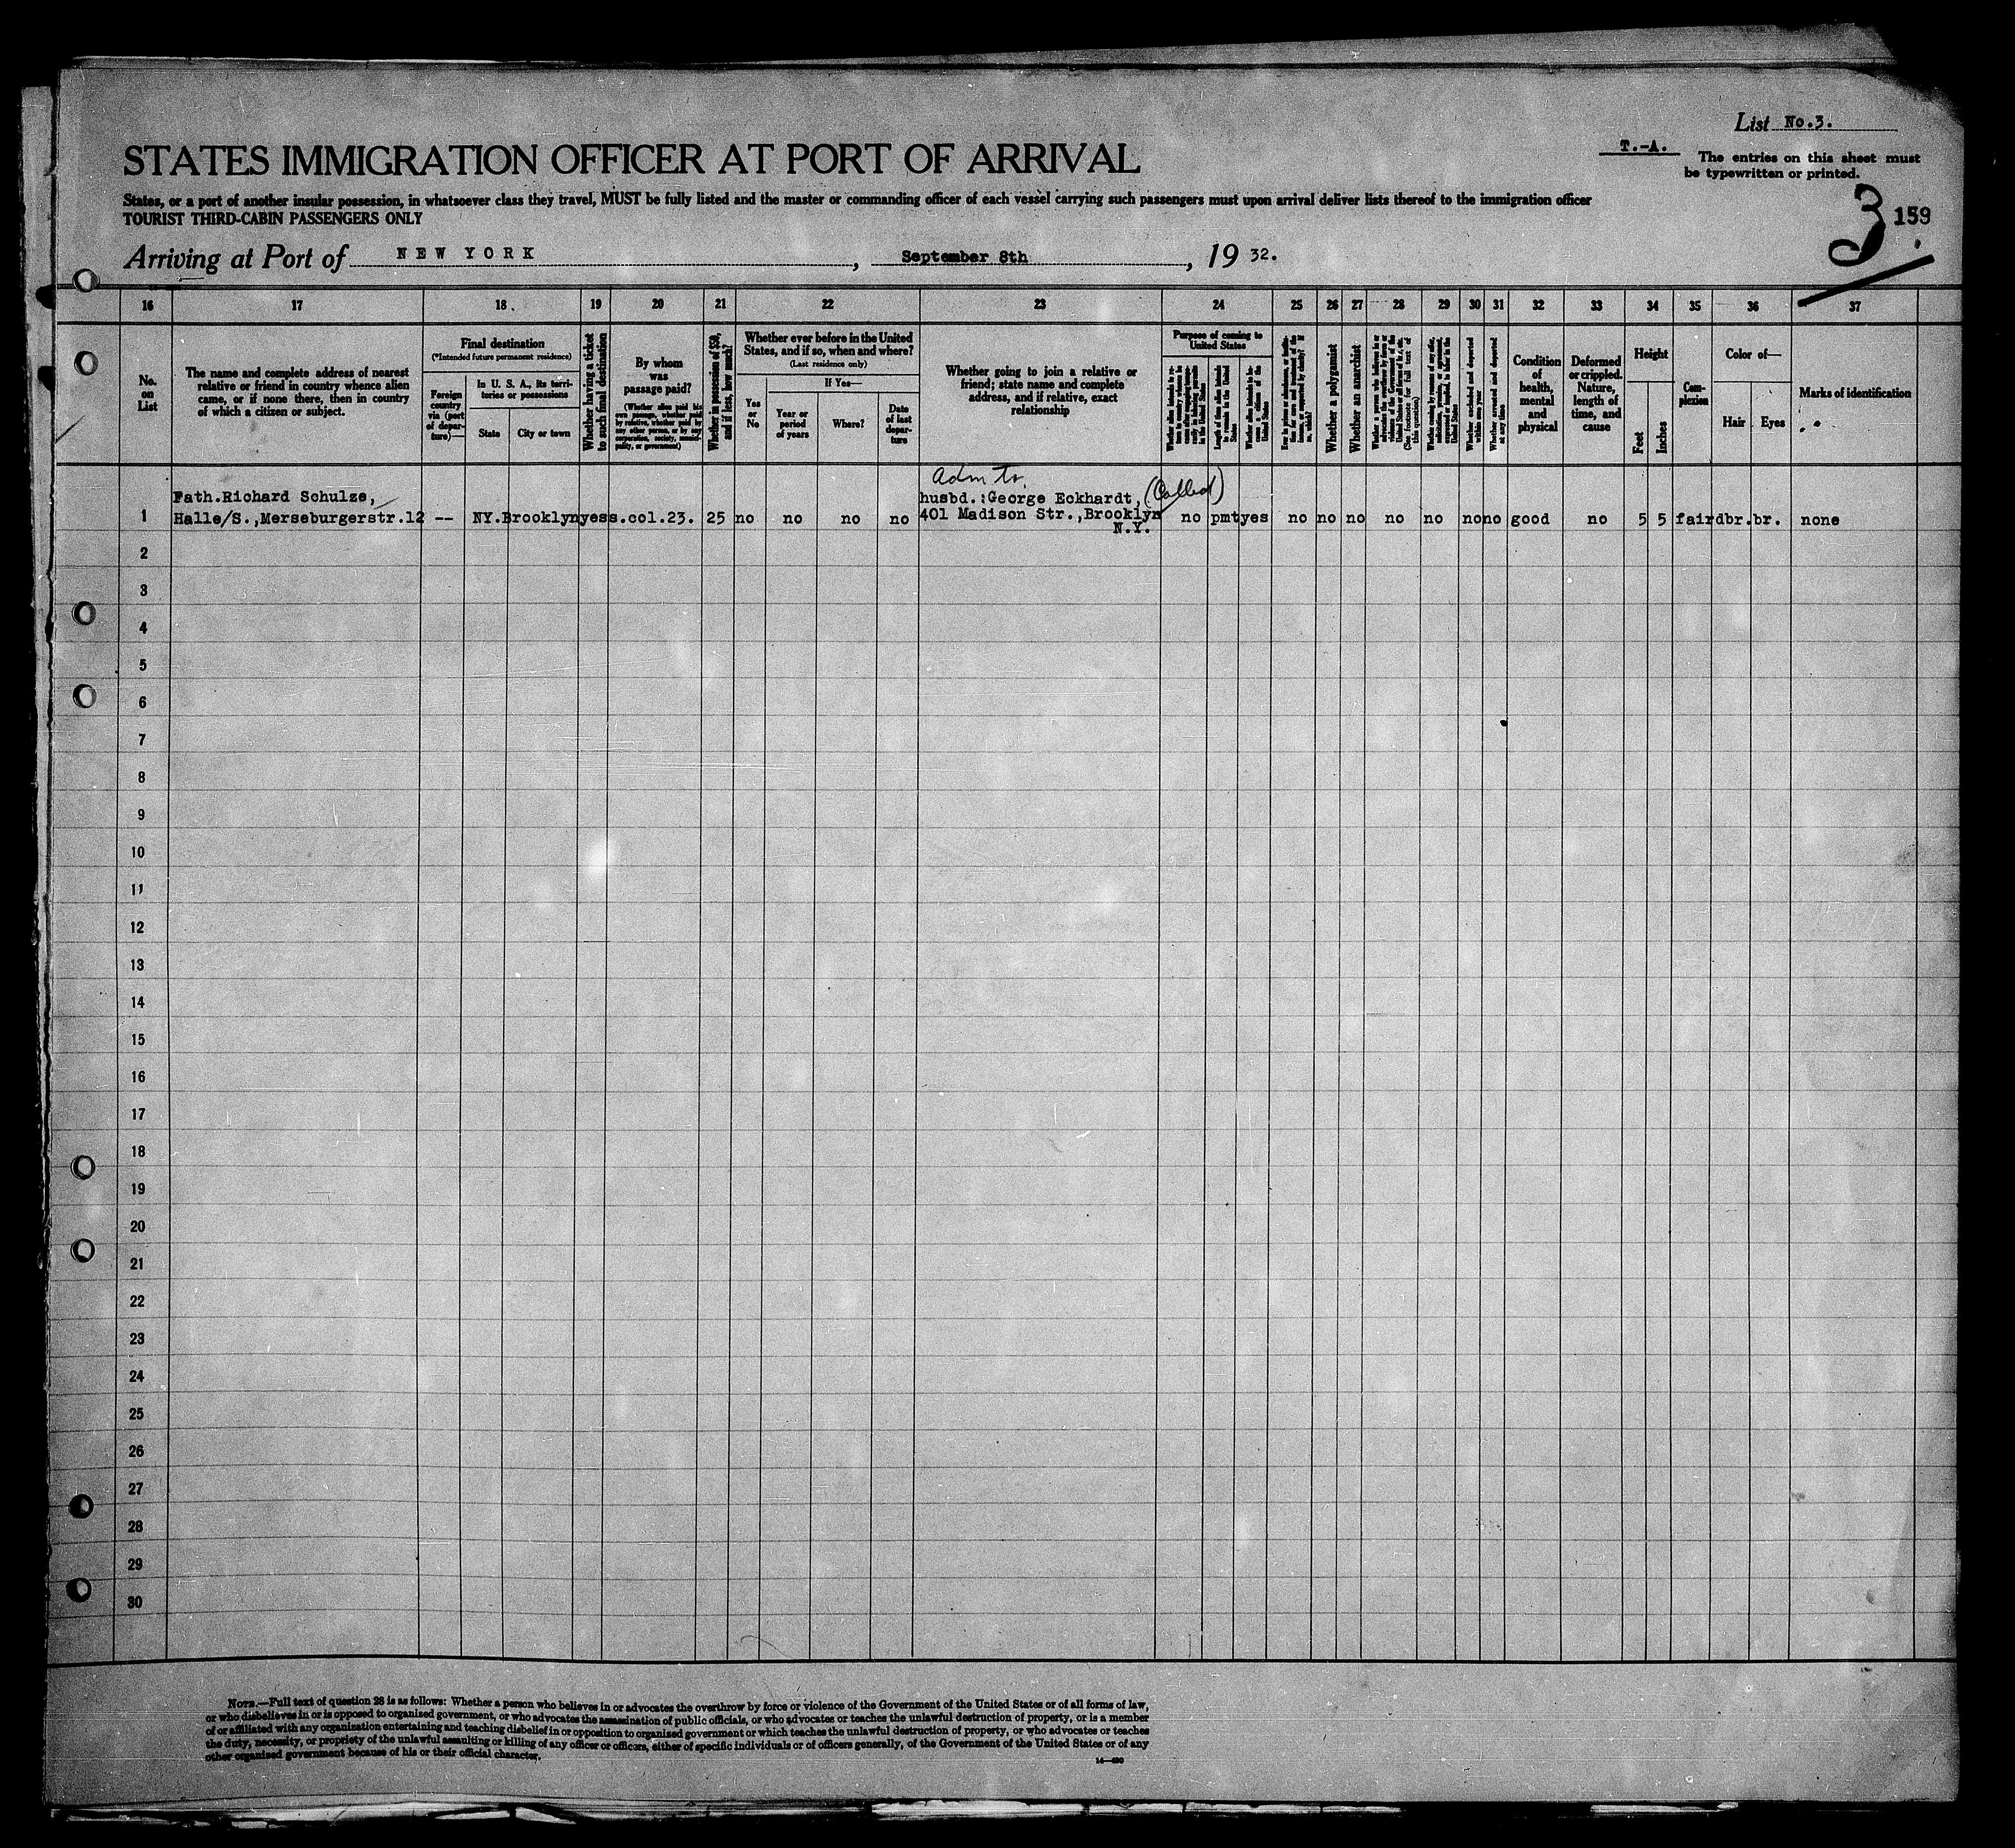 List No.3.
T.-A.
The entries on this sheet must
be typewritten or printed.
STATES IMMIGRATION OFFICER AT PORT OF ARRIVAL
States, or a port of another insular possession, in whatsoever class they travel, MUST be fully listed and the master or commanding officer of each vessel carrying such passengers must upon arrival deliver lists thereof to the immigration officer
TOURIST THIRD-CABIN PASSENGERS ONLY
3 159
Arriving at Port of NEW YORK, September 8th, 1932.
16 17 18 19 20 21 22 23 24 25 26 27 28 29 30 31 32 33 34 35 36 37
No.
on
List
The name and complete address of nearest
relative or friend in country whence alien
came, or if none there, then in country
of which a citizen or subject.
Final destination
(*Intended future permanent residence)
Foreign
country
via (port
of depar-
ture)—
In U. S. A., its terri-
tories or possessions
State
City or town
Whether having a ticket
to such final destination
By whom
was
passage paid?
(Whether alien paid his
own passage, whether paid
by relative, whether paid by
any other person, or by any
corporation, society, munici-
pality, or government)
Whether in possession of $50,
and if less, how much?
Whether ever before in the United
States, and if so, when and where?
(Last residence only)
Yes
or
No
If Yes—
Year or
period
of years
Where?
Date
of last
depar-
ture
Whether going to join a relative or
friend; state name and complete
address, and if relative, exact
relationship
Purpose of coming to
United States
Length of time alien intends
to remain in the United
States
Whether a polygamist
Whether an anarchist
(See footnote for full text of
this question)
Whether excluded and deported
within one year
Whether arrested and deported
at any time
Condition
of
health,
mental
and
physical
Deformed
or crippled.
Nature,
length of
time, and
cause
Height
Feet
Inches
Com-
plexion
Color of—
Hair
Eyes
Marks of identification
Adm to.
Fath.Richard Schulze,
husbd.:George Eckhardt, (Called)
1 Halle/S.,Merseburgerstr.12 -- NY.Brooklyn yes s.col.23. 25 no no no no 401 Madison Str.,Brooklyn no pmt yes no no no no no no no good no 5 5 fair dbr. br. none
N.Y.
2
3
4
5
6
7
8
9
10
11
12
13
14
15
16
17
18
19
20
21
22
23
24
25
26
27
28
29
30
NOTE.—Full text of question 28 is as follows: Whether a person who believes in or advocates the overthrow by force or violence of the Government of the United States or of all forms of law,
or who disbelieves in or is opposed to organized government, or who advocates the assassination of public officials, or who advocates or teaches the unlawful destruction of property, or is a member
of or affiliated with any organization entertaining and teaching disbelief in or opposition to organized government or which teaches the unlawful destruction of property, or who advocates or teaches
the duty, necessity, or propriety of the unlawful assaulting or killing of any officer or officers, either of specific individuals or of officers generally, of the Government of the United States or of any
other organized government because of his or their official character.